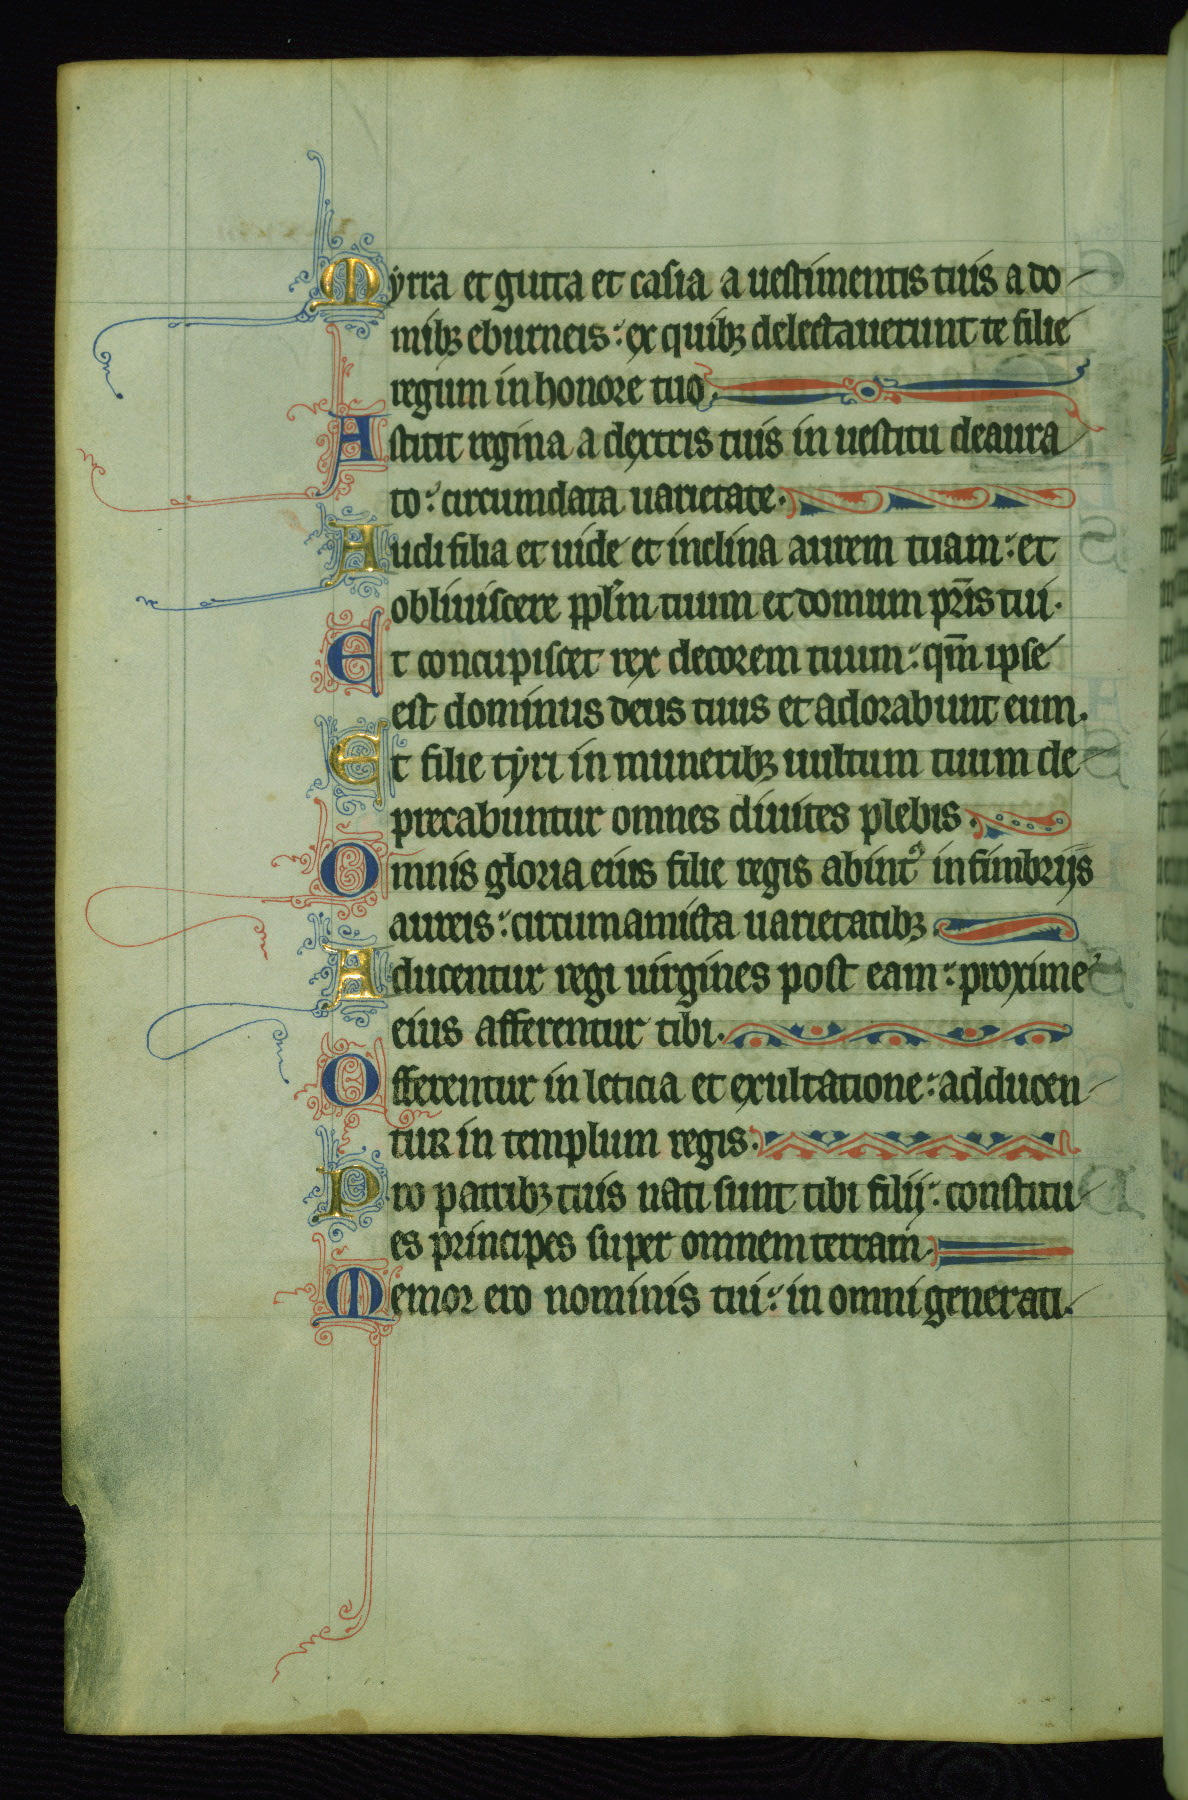 Myrra et gutta et casia a uestimentis tuis a do-
mibꝫ eburneis: ex quibꝫ delectauerunt te filie
regum in honore tuo.
Astitit regina a dextris tuis in uestitu deaura
to: circumdata uarietate.
Audi filia et uide et inclina aurem tuam: et
obliuiscere pp̄lm tuum et domum pr̄is tui.
Et concupiscet rex decorem tuum: qm̄ ipse
est dominus deus tuus et adorabunt eum.
Et filie tyri in muneribꝫ uultum tuum de-
precabuntur omnes diuites plebis.
Omnis gloria eius filie regis abintꝰ in fimbrijs
aureis: circumamicta uarietatibꝫ
Aducentur regi uirgines post eam: proxime
eius afferentur tibi.
Offerentur in leticia et exultatione: adducen-
tur in templum regis.
Pro patribꝫ tuis nati sunt tibi filij: constitu-
es principes super omnem terram.
Memor ero nominis tui: in omni generati.